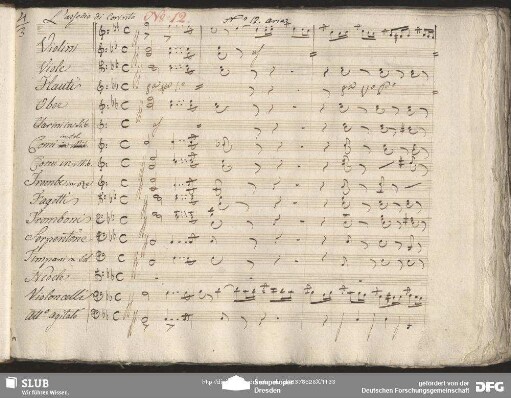 L'assedio di Corinto No 12. No 12. aria
Violini
Viole
Flauti
Oboe
Clarini in Sib
Corni in Sol
Corni in Mib
Trombe in
Fagotti
Tromboni
Serpentone
Timpani in Sol
Neocle
Violoncelli
All.o agitato
SLUB
Wir führen Wissen.
Dresden
gefördert von der
Deutschen Forschungsgemeinschaft
DFG